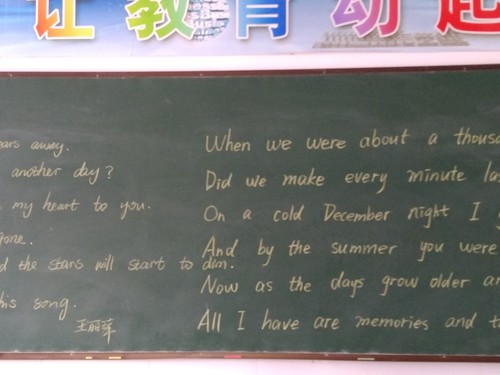 让教育动起
ears away.
another day?
my heart to you.
gone.
d the stars will start to dim.
his song.
王丽萍
When we were about a thousa
Did we make every minute las
On a cold December night I g
And by the summer you were
Now as the days grow older an
All I have are memories and t